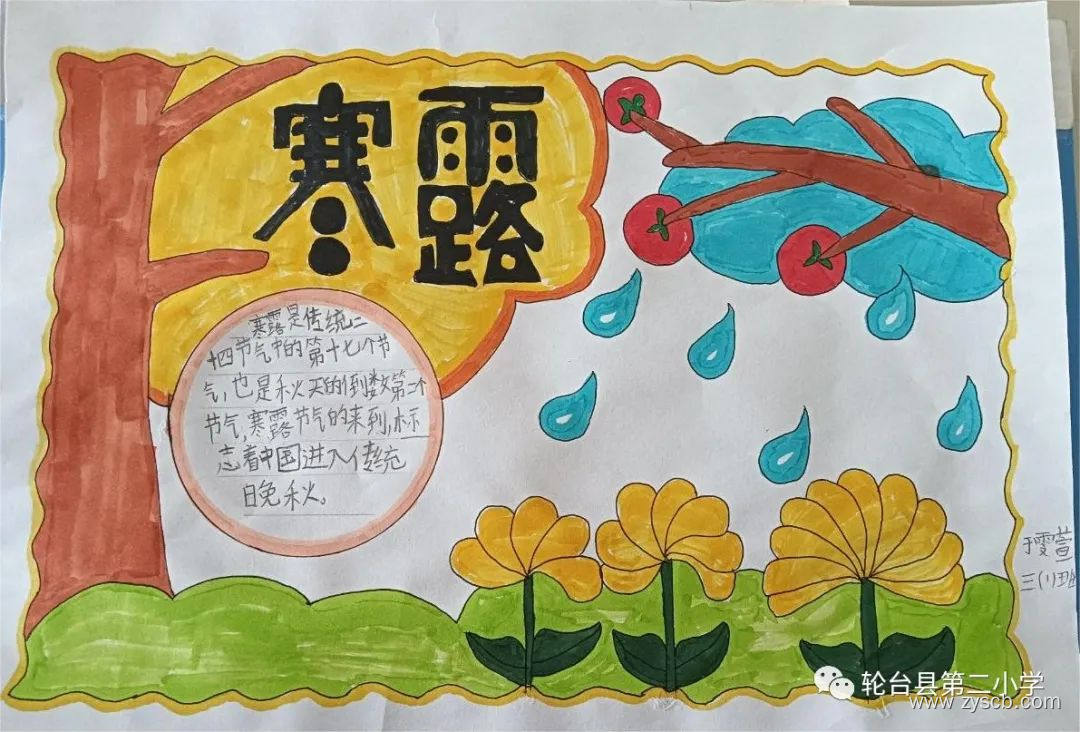 寒露
寒露是传统二
十四节气中的第十七个节
气,也是秋天的倒数第二个
节气,寒露节气的来到,标
志着中国进入传统
晚秋。
于雯萱
三(1)班
轮台县第二小学
www.zyscb.com